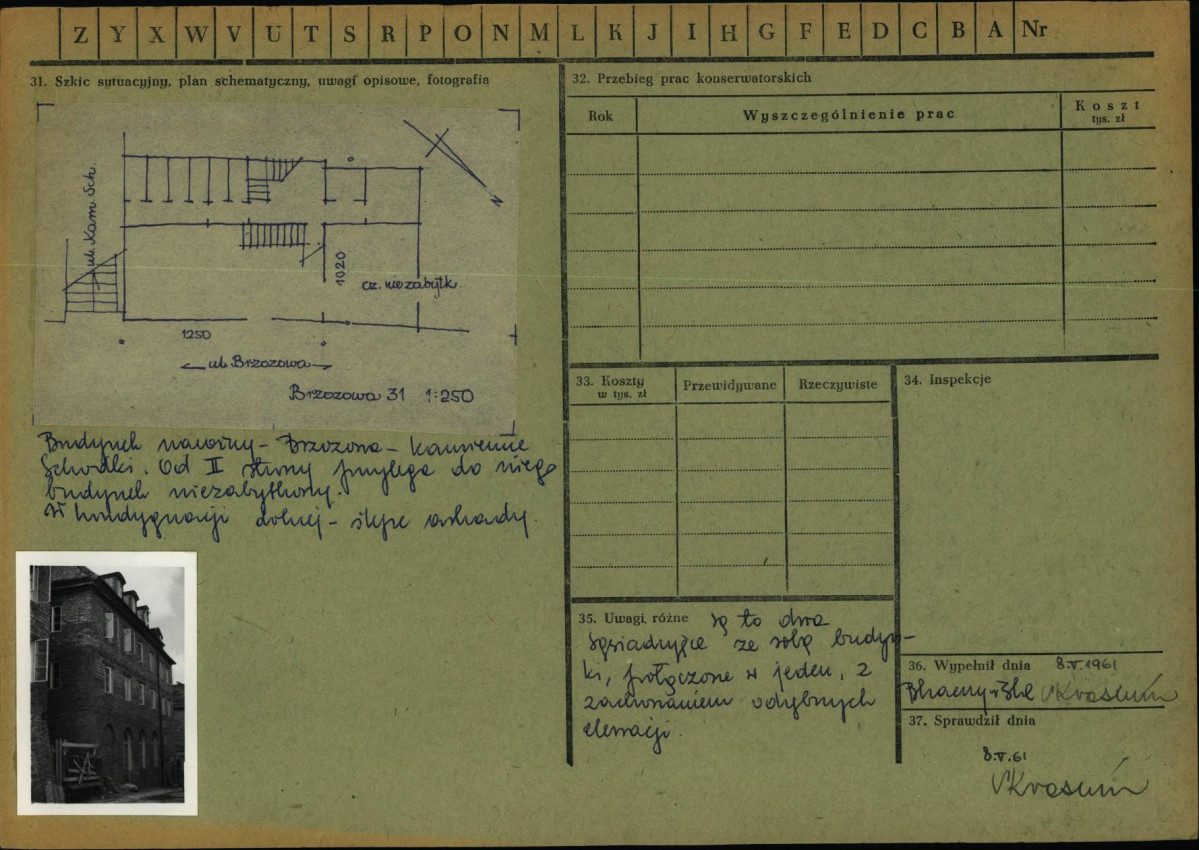 Z Y X W V U T S R P O N M L K J I H G F E D C B A Nr
31. Szkic sytuacyjny, plan schematyczny, uwagi opisowe, fotografia
ul. Kam. Sch.
N
1020
cz. niezabytk.
1250
ul. Brzozowa
Brzozowa 31 1:250
Budynek narożny - Brzozowa - Kamienne
Schodki. Od II strony przylega do niego
budynek niezabytkowy.
W kondygnacji dolnej - ślepe arkady.
32. Przebieg prac konserwatorskich
Rok
Wyszczególnienie prac
Koszt
tys. zł
33. Koszty
w tys. zł
Przewidywane
Rzeczywiste
34. Inspekcje
35. Uwagi różne Są to dwa
sąsiadujące ze sobą budyn-
ki, połączone w jeden, z
zachowaniem odrębnych
elewacji.
36. Wypełnił dnia 8.V.1961
37. Sprawdził dnia
8.V.61